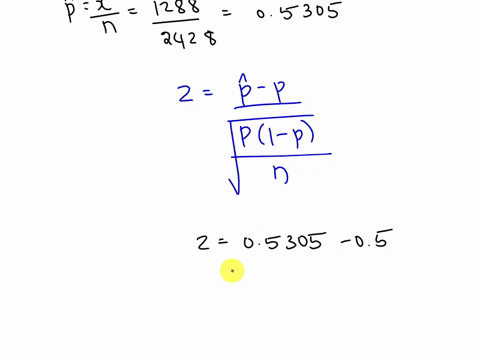 p̂ = x/n = 1288/2428 = 0.5305
z = p̂ - p / √(p(1-p)/n)
z = 0.5305 - 0.5